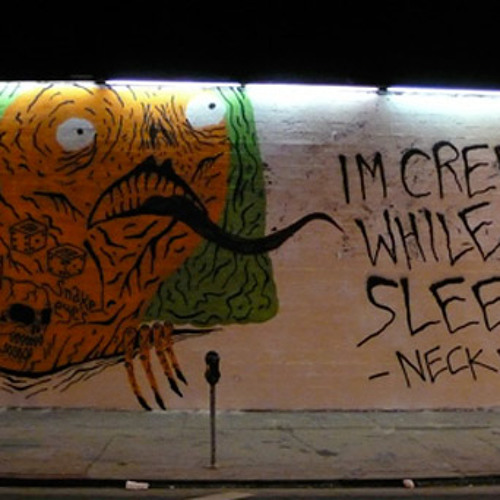 IM CREE
WHILE
SLEE
- NECK
Snake
eyes